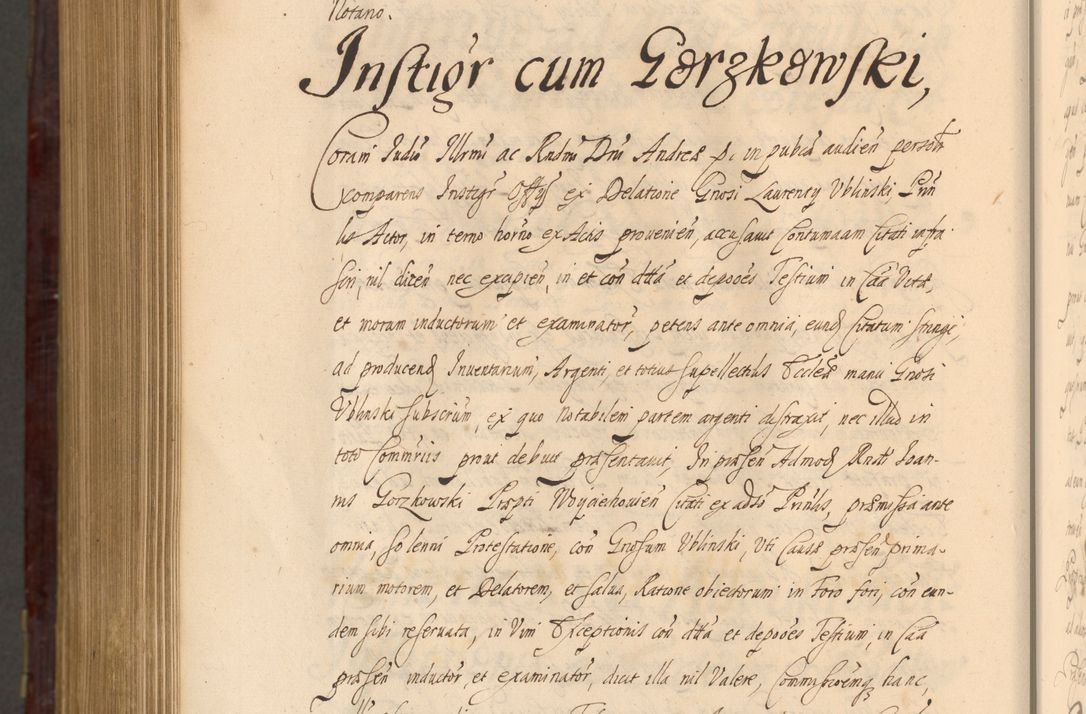 Notario.
Instigr cum Gorzkowski,
Coram Iudio Illrmi ac Rndmi Dni Andreæ &c in publca audien person
comparens Instigr Offy ex Delatione Gnosi Laurenty Ublinski, Prin
lis Actor, in terno horno ex Actis provenien, accusavit Contumaam Citati infra
scri, nil dicen nec excipien, in et con dtta et depooes Testium in Caa Vertæ,
et motam inductorum et examinator, petens ante omnia, eund Citatum stringi,
ad producend Inventarium, Argenti, et totius supellectilis Eccleæ manu Gnosi
Ublinski subscrium, ex quo Notabilem partem argenti distraxit, nec illud in
toto Commriis prout debuit præsentavit, In præsen Admod Rndi Ioan-
nis Gorzkowski Præpti Woyciehovien Citati ex adso Prinlis, præmissa ante
omnia, solenni Protestatione, con Gnosum Ublinski, Uti Causæ præsen prima-
rium motorem, et Delatorem, et salva, Ratione obiectorum in Foro fori, con eun-
dem sibi reservata, in Vim Exceptionis con dtta et depooes Testium, in Caa
præsen inductor, et examinator, dicit illa nil Valere, hanc,